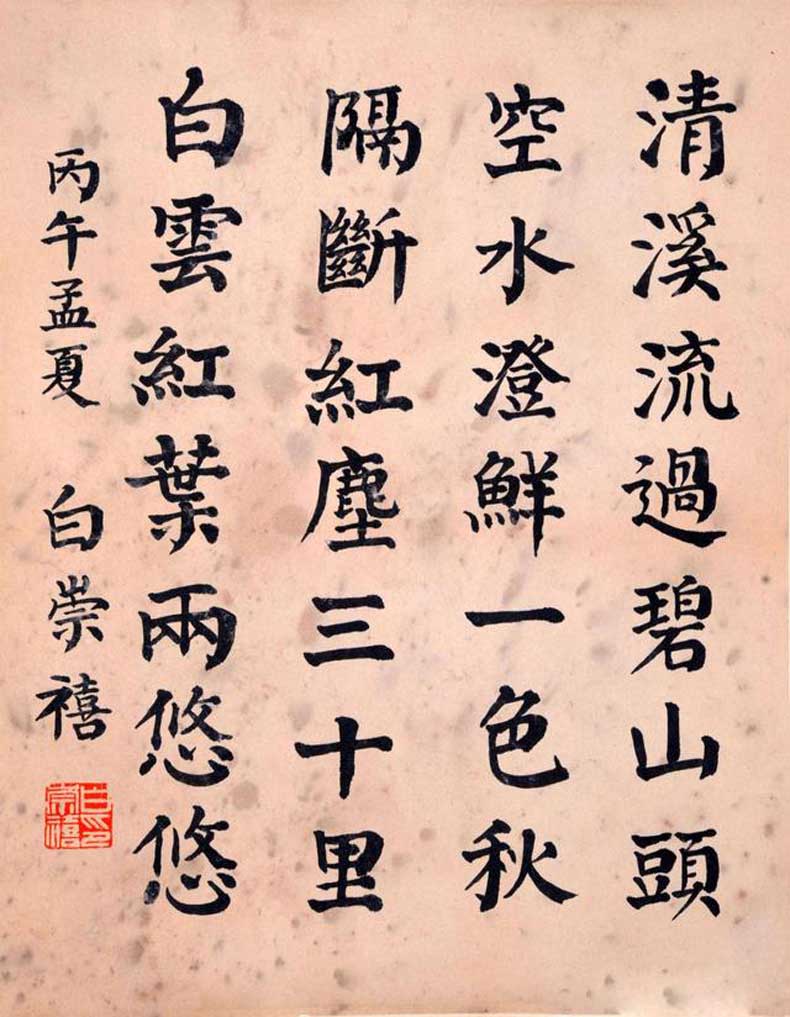 清溪流過碧山頭
空水澄鮮一色秋
隔斷紅塵三十里
白雲紅葉兩悠悠
丙午孟夏 白崇禧
白崇禧印